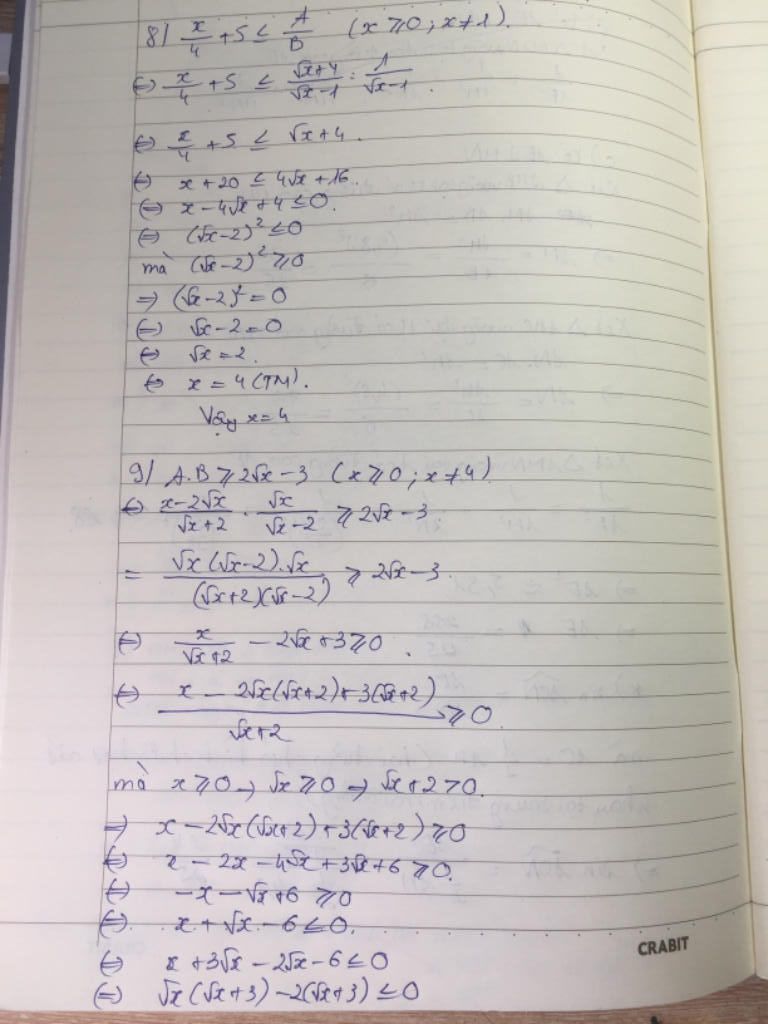 8/ x/4 + 5 ≤ A/B (x ≥ 0 ; x ≠ 1).
⇔ x/4 + 5 ≤ (√x+4)/(√x-1) : 1/(√x-1).
⇔ x/4 + 5 ≤ √x + 4.
⇔ x + 20 ≤ 4√x + 16.
⇔ x - 4√x + 4 ≤ 0.
⇔ (√x - 2)² ≤ 0
mà (√x - 2)² ≥ 0
⇒ (√x - 2)² = 0
⇔ √x - 2 = 0
⇔ √x = 2.
⇔ x = 4 (TM).
Vậy x = 4
9/ A.B ≥ 2√x - 3 (x ≥ 0 ; x ≠ 4).
⇔ (x - 2√x)/(√x+2) . √x/(√x-2) ≥ 2√x - 3
= (√x(√x-2).√x)/((√x+2)(√x-2)) ≥ 2√x - 3.
⇔ x/(√x+2) - 2√x + 3 ≥ 0.
⇔ (x - 2√x(√x+2) + 3(√x+2))/(√x+2) ≥ 0
mà x ≥ 0 → √x ≥ 0 → √x + 2 > 0.
⇒ x - 2√x(√x+2) + 3(√x+2) ≥ 0
⇔ x - 2x - 4√x + 3√x + 6 ≥ 0.
⇔ -x - √x + 6 ≥ 0
⇔ x + √x - 6 ≤ 0.
CRABIT
⇔ x + 3√x - 2√x - 6 ≤ 0
⇔ √x(√x+3) - 2(√x+3) ≤ 0